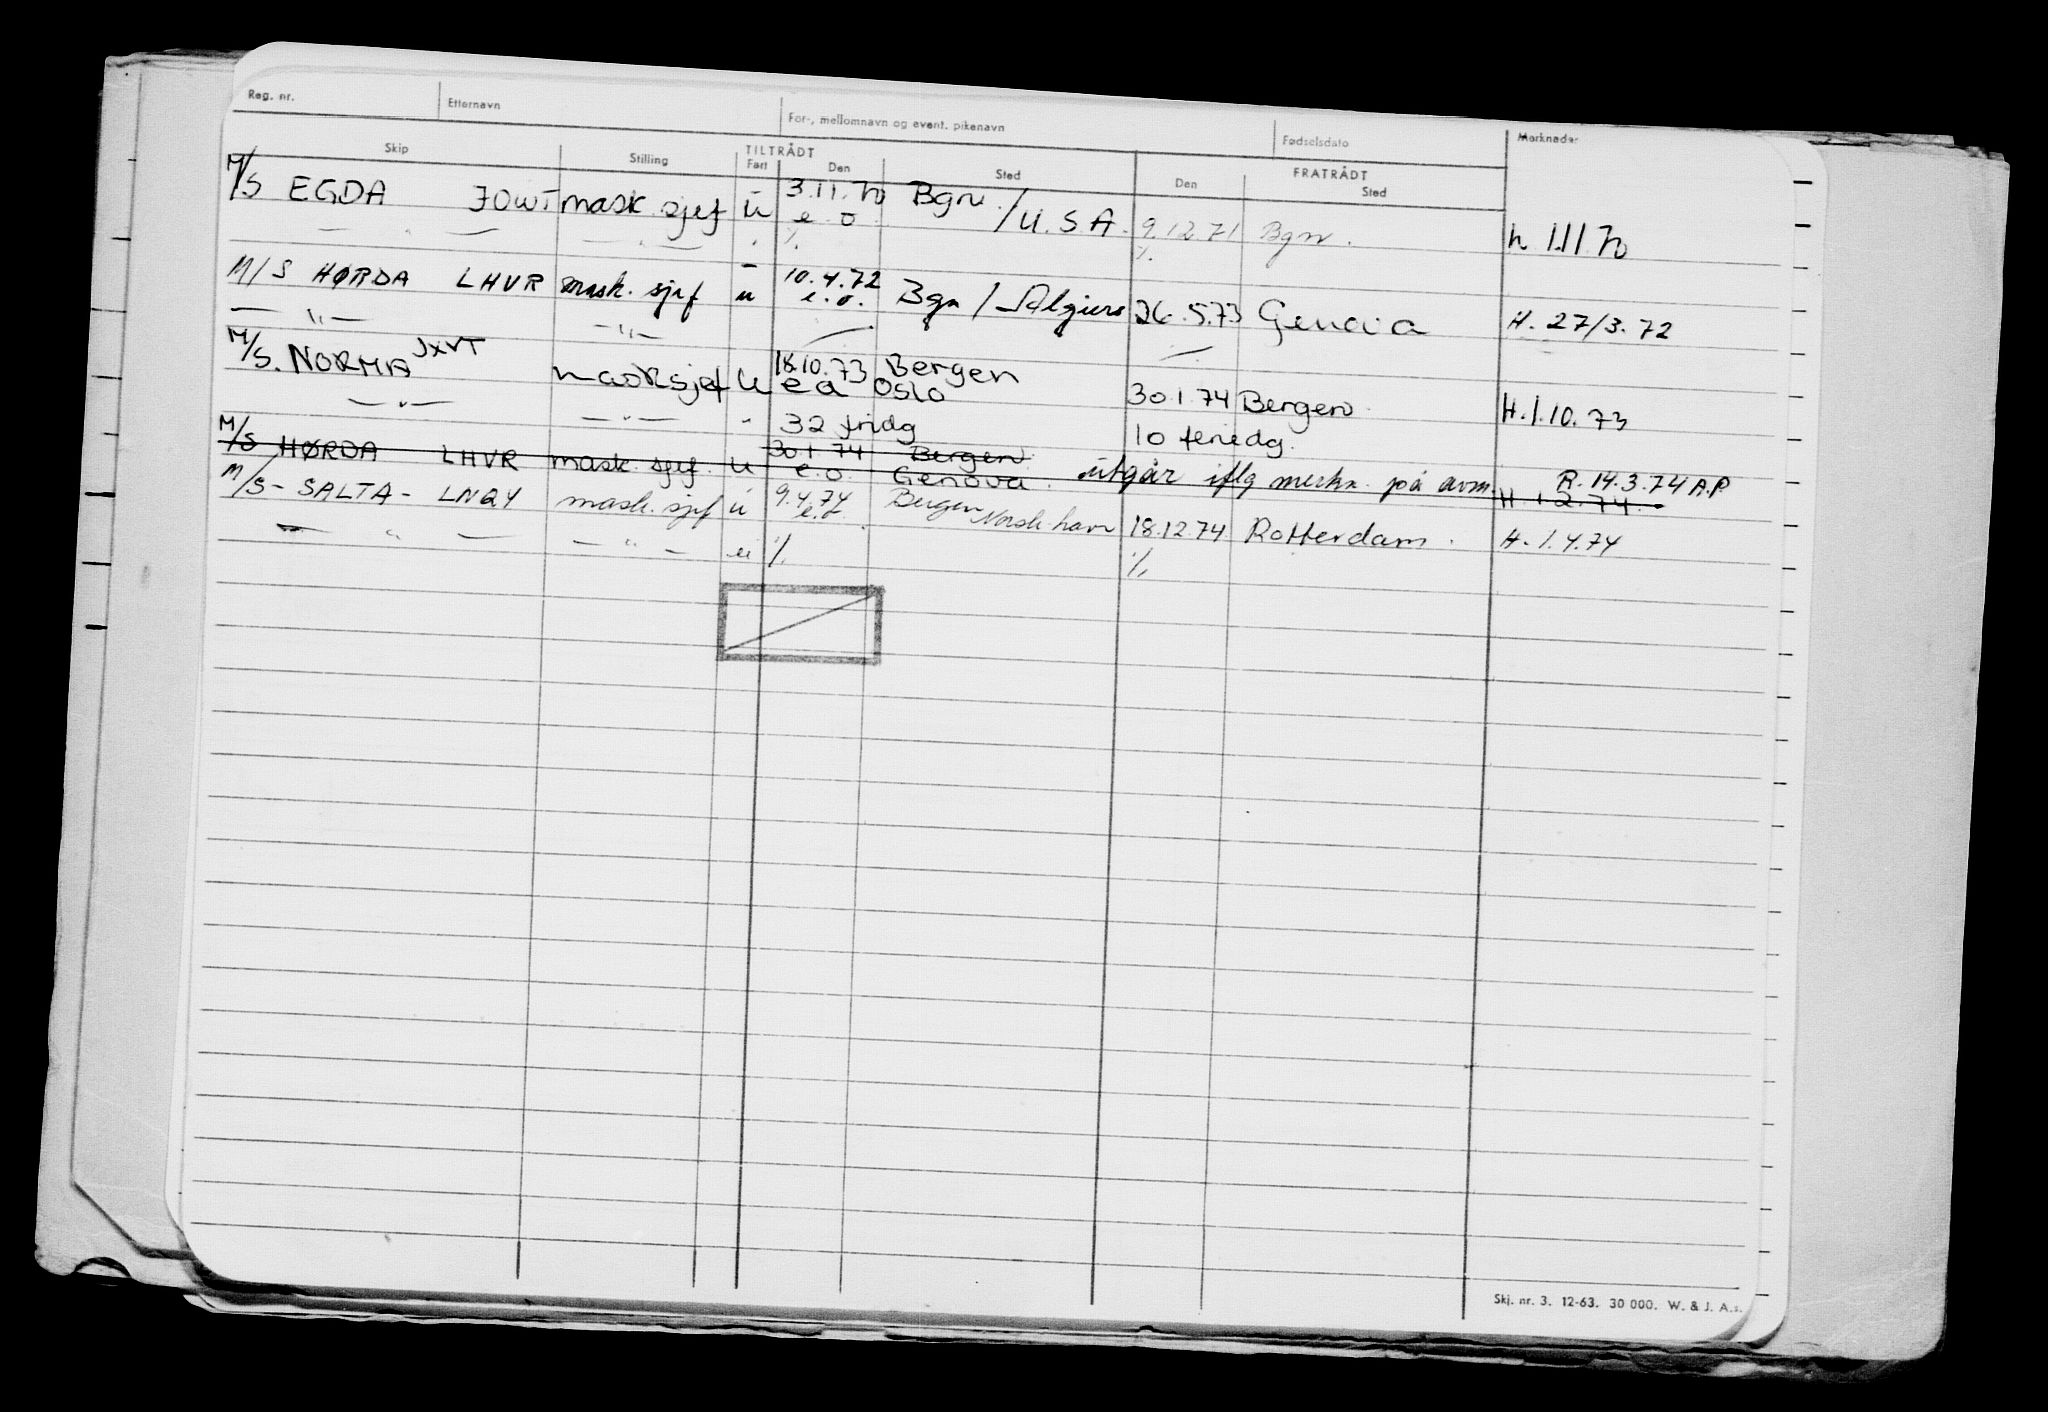 Reg. nr. Etternavn For-, mellomnavn og event. pikenavn Fødselsdato Merknader
Skip Stilling TILTRÅDT Fart Den Sted FRATRÅDT Den Sted
M/S EGDA JOWT mask. sjef u 3.11.70 Bgn. / U.S.A. 9.12.71 Bgn. h 1.11.70
e.o.
— " — — " — " %. %.
M/S HØRDA LHVR mask. sjef u 10.4.72 Bgn / Algiers 26.5.73 Genova H. 27/3.72
e.o.
— " — — " —
M/S. NORMA JXVT masksjef u 18.10.73 Bergen 30.1.74 Bergen H.1.10.73
ea Oslo
— " — — " — " 32 fridg 10 feriedg.
M/S HØRDA LHVR mask. sjef. u 30.1.74 Bergen utgår iflg merkn. på avm. R. 14.3.74 A.P
e.o. Genova. H 1 2.74.
M/S - SALTA - LNQY mask. sjef u 9.4.74 Bergen Norsk havn 18.12.74 Rotterdam. H. 1.4.74
e.t.
— " — — " — u %. %.
Skj. nr. 3. 12-63. 30 000. W. & J. A.s.